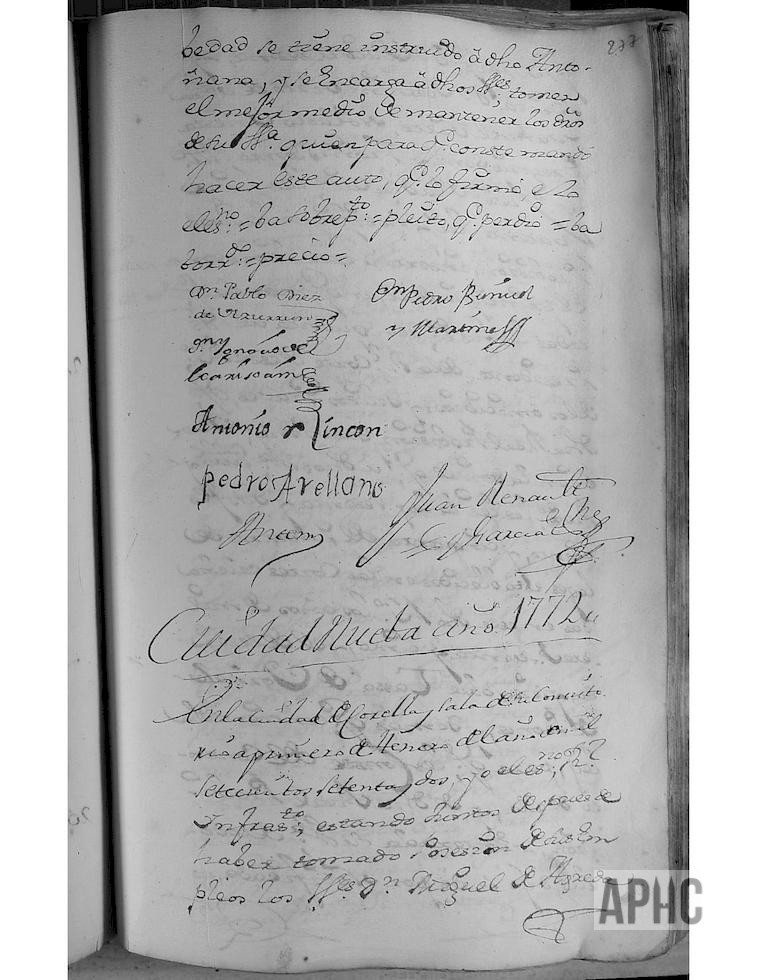 277
bedad se tiene instruido â dho Anto-
ñana, y se encarga â dhos SSres tomen
el mejor medio de mantener los dros
de su SSa. quien para q. conste mandó
hacer este auto, q. lo firmó, e Yo
el esno: = ba sobrepto: = pleito, q. perdio = ba
precio =
Dn. Pablo Diez
de
Dn Pedro Buñuel
y Martinez
Dn Ygnacio de
Antonio Rincon
Pedro Arellano
Juan Renault
y Garcia
Antemi
Ciudad Nueba año 1772
En la Ciudad de Corella y sala de su Consisto
rio a primero de Henero del año de mil
setecientos setenta y dos, yo el esno
Infrasto, estando Juntos despues de
haber tomado Posesion de sus Em
pleos los SSres Dn Miguel de Agreda
APHC